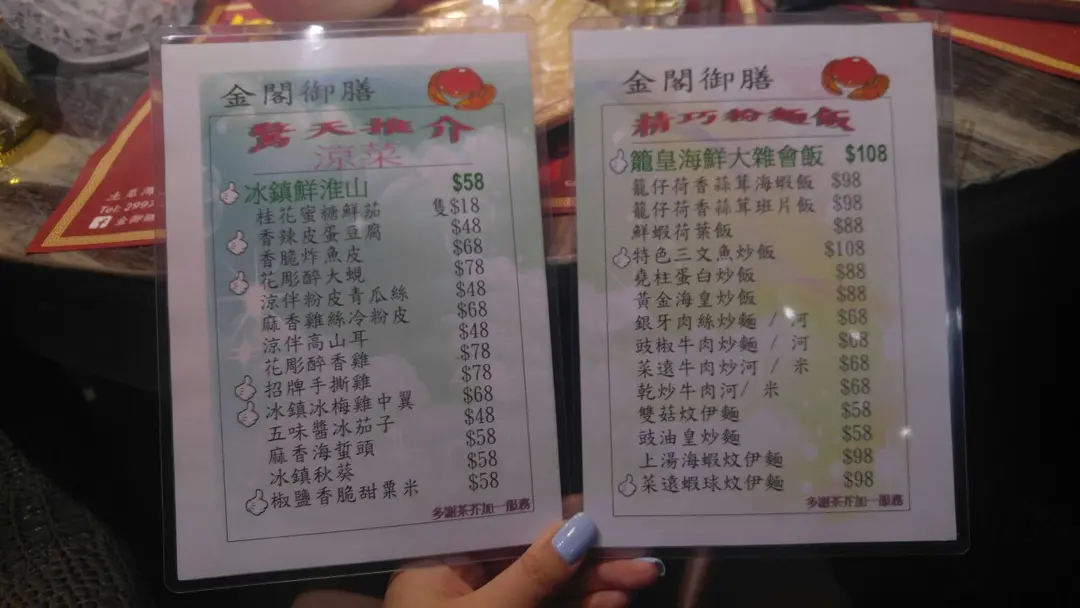 金閣御膳
驚天推介
涼菜
冰鎮鮮淮山 $58
桂花蜜糖鮮茄 隻$18
香辣皮蛋豆腐 $48
香脆炸魚皮 $68
花彫醉大蜆 $78
涼伴粉皮青瓜絲 $48
麻香雞絲冷粉皮 $68
涼伴高山耳 $48
花彫醉香雞 $78
招牌手撕雞 $78
冰鎮冰梅雞中翼 $68
五味醬冰茄子 $48
麻香海蜇頭 $58
冰鎮秋葵 $58
椒鹽香脆甜粟米 $58
多謝茶芥加一服務
金閣御膳
精巧粉麵飯
籠皇海鮮大雜會飯 $108
籠仔荷香蒜茸海蝦飯 $98
籠仔荷香蒜茸班片飯 $98
鮮蝦荷葉飯 $88
特色三文魚炒飯 $108
堯柱蛋白炒飯 $88
黃金海皇炒飯 $88
銀牙肉絲炒麵 / 河 $68
豉椒牛肉炒麵 / 河 $68
菜遠牛肉炒河 / 米 $68
乾炒牛肉河/ 米 $68
雙菇炆伊麵 $58
豉油皇炒麵 $58
上湯海蝦炆伊麵 $98
菜遠蝦球炆伊麵 $98
多謝茶芥加一服務
Tel: 299